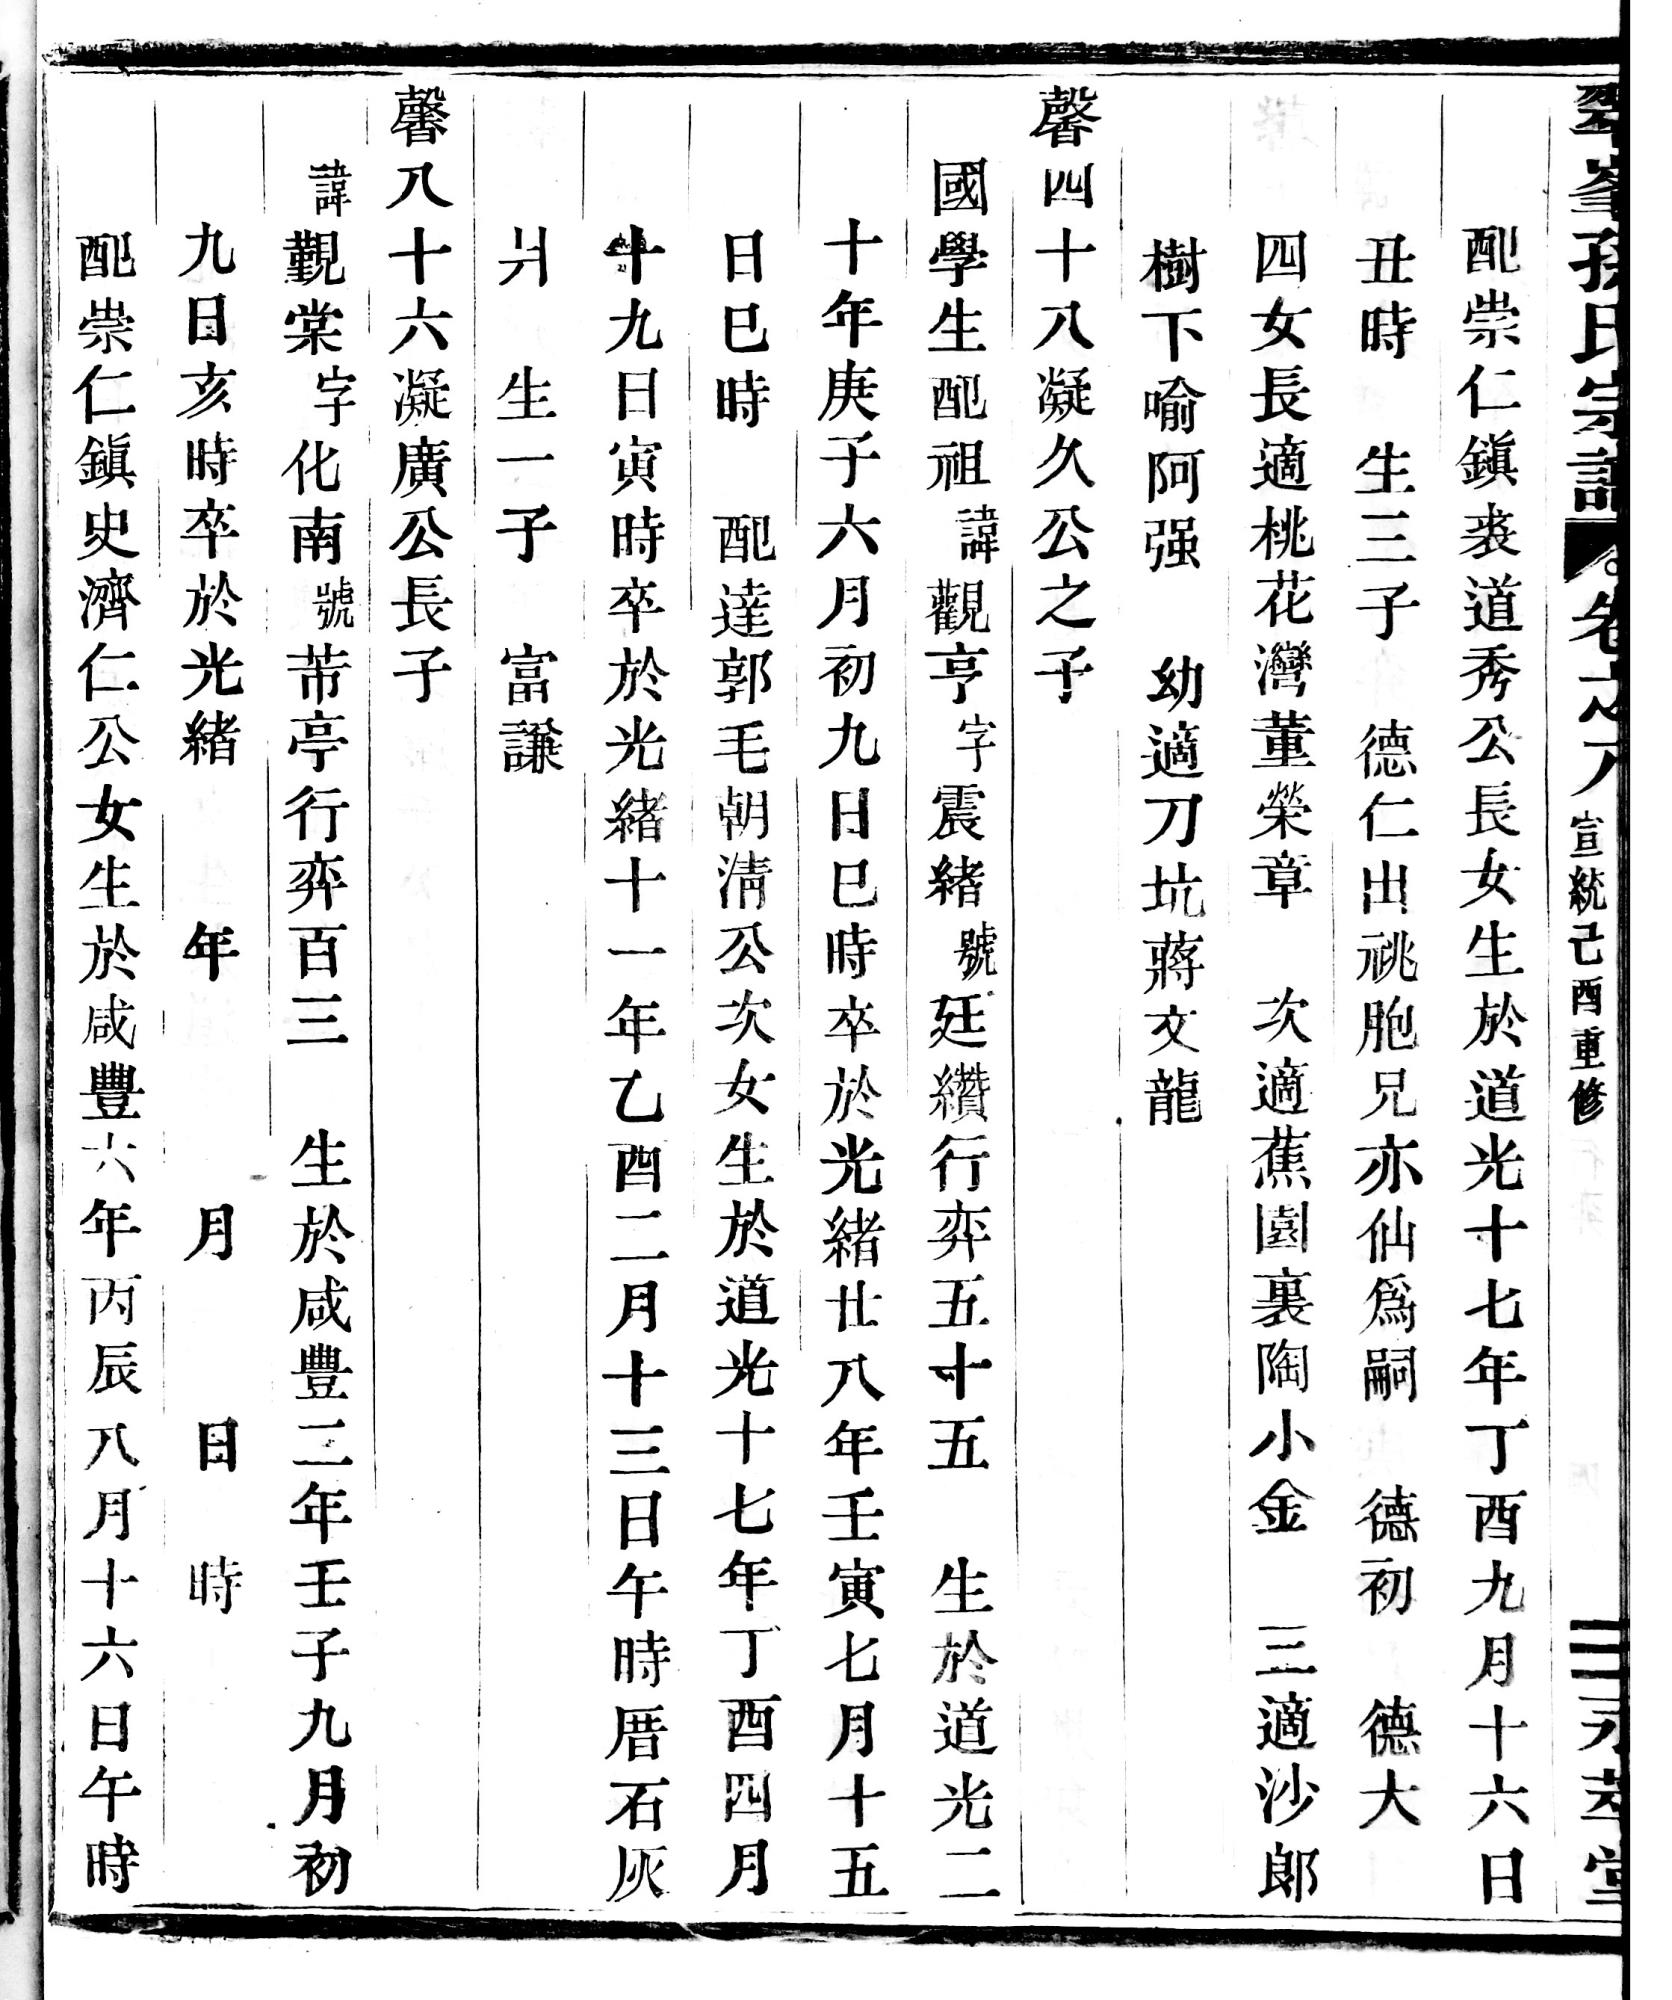 翠峯孫氏宗譜 卷之八 宣統己酉重修 永萃堂
配崇仁鎮裘道秀公長女生於道光十七年丁酉九月十六日
丑時 生三子 德仁出祧胞兄亦仙爲嗣 德初 德大
四女長適桃花灣董榮章 次適蕉園裏陶小金 三適沙郞
樹下喻阿强 幼適刀坑蔣文龍
馨四十八凝久公之子
國學生配祖諱觀亨字震緒號廷纘行弈五十五 生於道光二
十年庚子六月初九日巳時卒於光緒廿八年壬寅七月十五
日巳時 配達郭毛朝淸公次女生於道光十七年丁酉四月
十九日寅時卒於光緒十一年乙酉二月十三日午時厝石灰
爿 生一子 富謙
馨八十六凝廣公長子
諱觀棠字化南號芾亭行弈百三 生於咸豐二年壬子九月初
九日亥時卒於光緒 年 月 日 時
配崇仁鎮史濟仁公女生於咸豐六年丙辰八月十六日午時